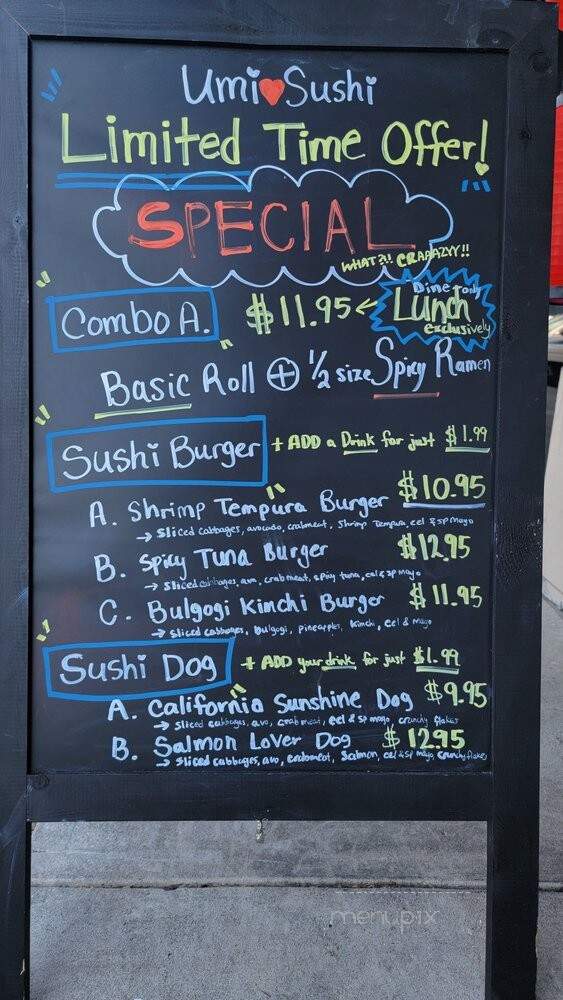 Umi Sushi
Limited Time Offer!
SPECIAL
WHAT?!! CRAAAZYY!!
Combo A. $11.95 ← Dine In only Lunch exclusively
Basic Roll + 1/2 size Spicy Ramen
Sushi Burger + ADD a Drink for just $1.99
A. Shrimp Tempura Burger $10.95
→ Sliced cabbages, avocado, crabmeat, Shrimp Tempura, eel & sp mayo
B. Spicy Tuna Burger $12.95
→ Sliced cabbages, avo, crab meat, spicy tuna, eel & sp mayo
C. Bulgogi Kimchi Burger $11.95
→ Sliced cabbages, Bulgogi, pineapples, kimchi, eel & mayo
Sushi Dog + ADD your drink for just $1.99
A. California Sunshine Dog $9.95
→ Sliced cabbages, avo, crab meat, eel & sp mayo, crunchy flakes
B. Salmon Lover Dog $12.95
→ Sliced cabbages, avo, crabmeat, Salmon, eel & sp mayo, crunchy flakes
menupix